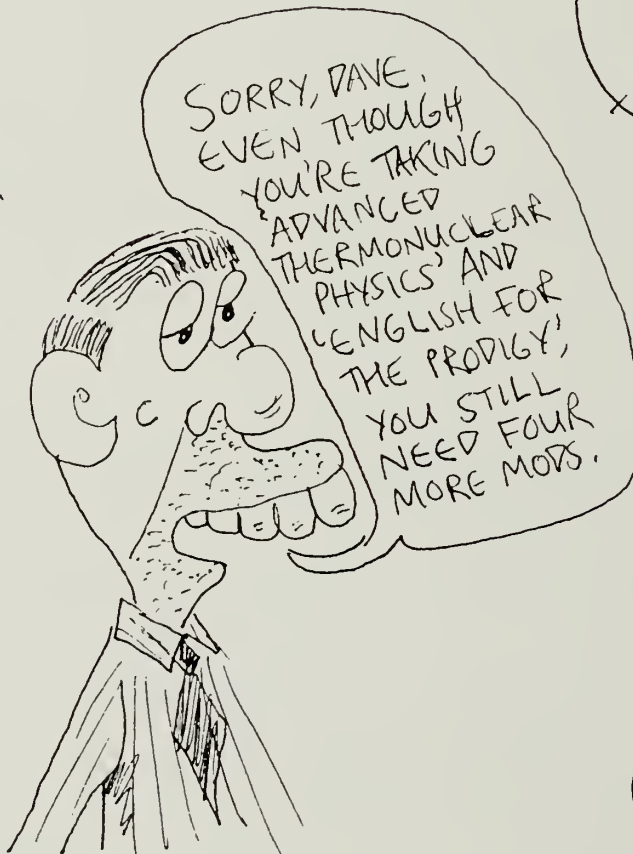 SORRY, DAVE.
EVEN THOUGH
YOU'RE TAKING
'ADVANCED
THERMONUCLEAR
PHYSICS' AND
'ENGLISH FOR
THE PRODIGY',
YOU STILL
NEED FOUR
MORE MODS.